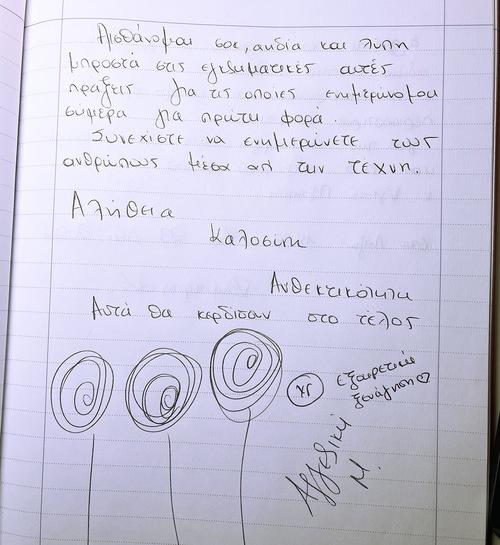 Αισθάνομαι σοκ, αηδία και λύπη
μπροστά στις εγκληματικές αυτές
πράξεις για τις οποίες ενημερώνομαι
σήμερα για πρώτη φορά.
Συνεχίστε να ενημερώνετε τους
ανθρώπους μέσα απ την τέχνη.
Αλήθεια
Καλοσύνη
Ανθεκτικότητα
Αυτά θα κερδίσουν στο τέλος
ΥΓ εξαιρετική
ξενάγηση
Αγγελική
Μ.